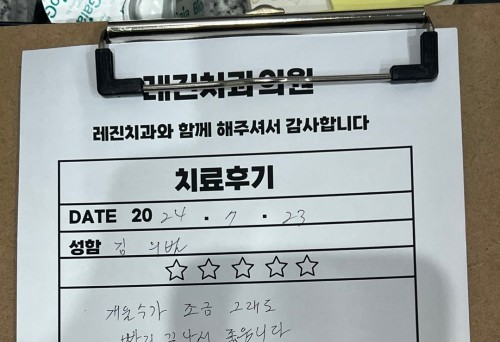 레진치과의원
레진치과와 함께 해주셔서 감사합니다
치료후기
DATE 20 24 . 7 . 23
성함 김
조금 그대로
좋습니다